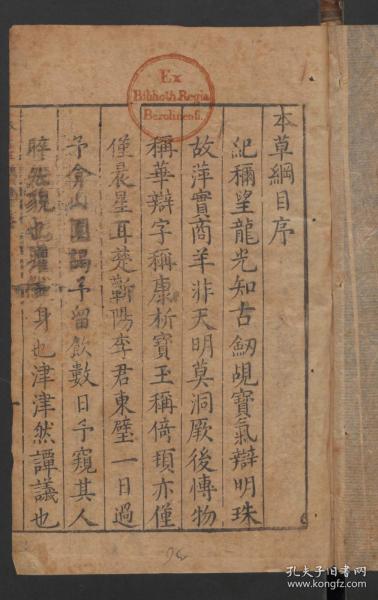 本草綱目序
紀稱望龍光知古劒覘寶氣辯明珠
故萍實商羊非天明莫洞厥後愽物
稱華辯字稱康析寶玉稱倚頓亦僅
僅晨星耳楚蘄陽李君東璧一日過
予弇山園謁予留飲數日予窺其人
睟然貌也癯然身也津津然譚議也
Ex
Biblioth. Regia
Berolinensi.
孔夫子旧书网
www.kongfz.com